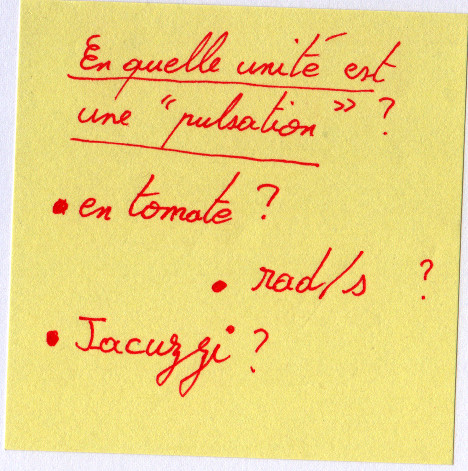 En quelle unité est
une "pulsation" ?
• en tomate ?
• rad/s ?
• Jacuzzi ?